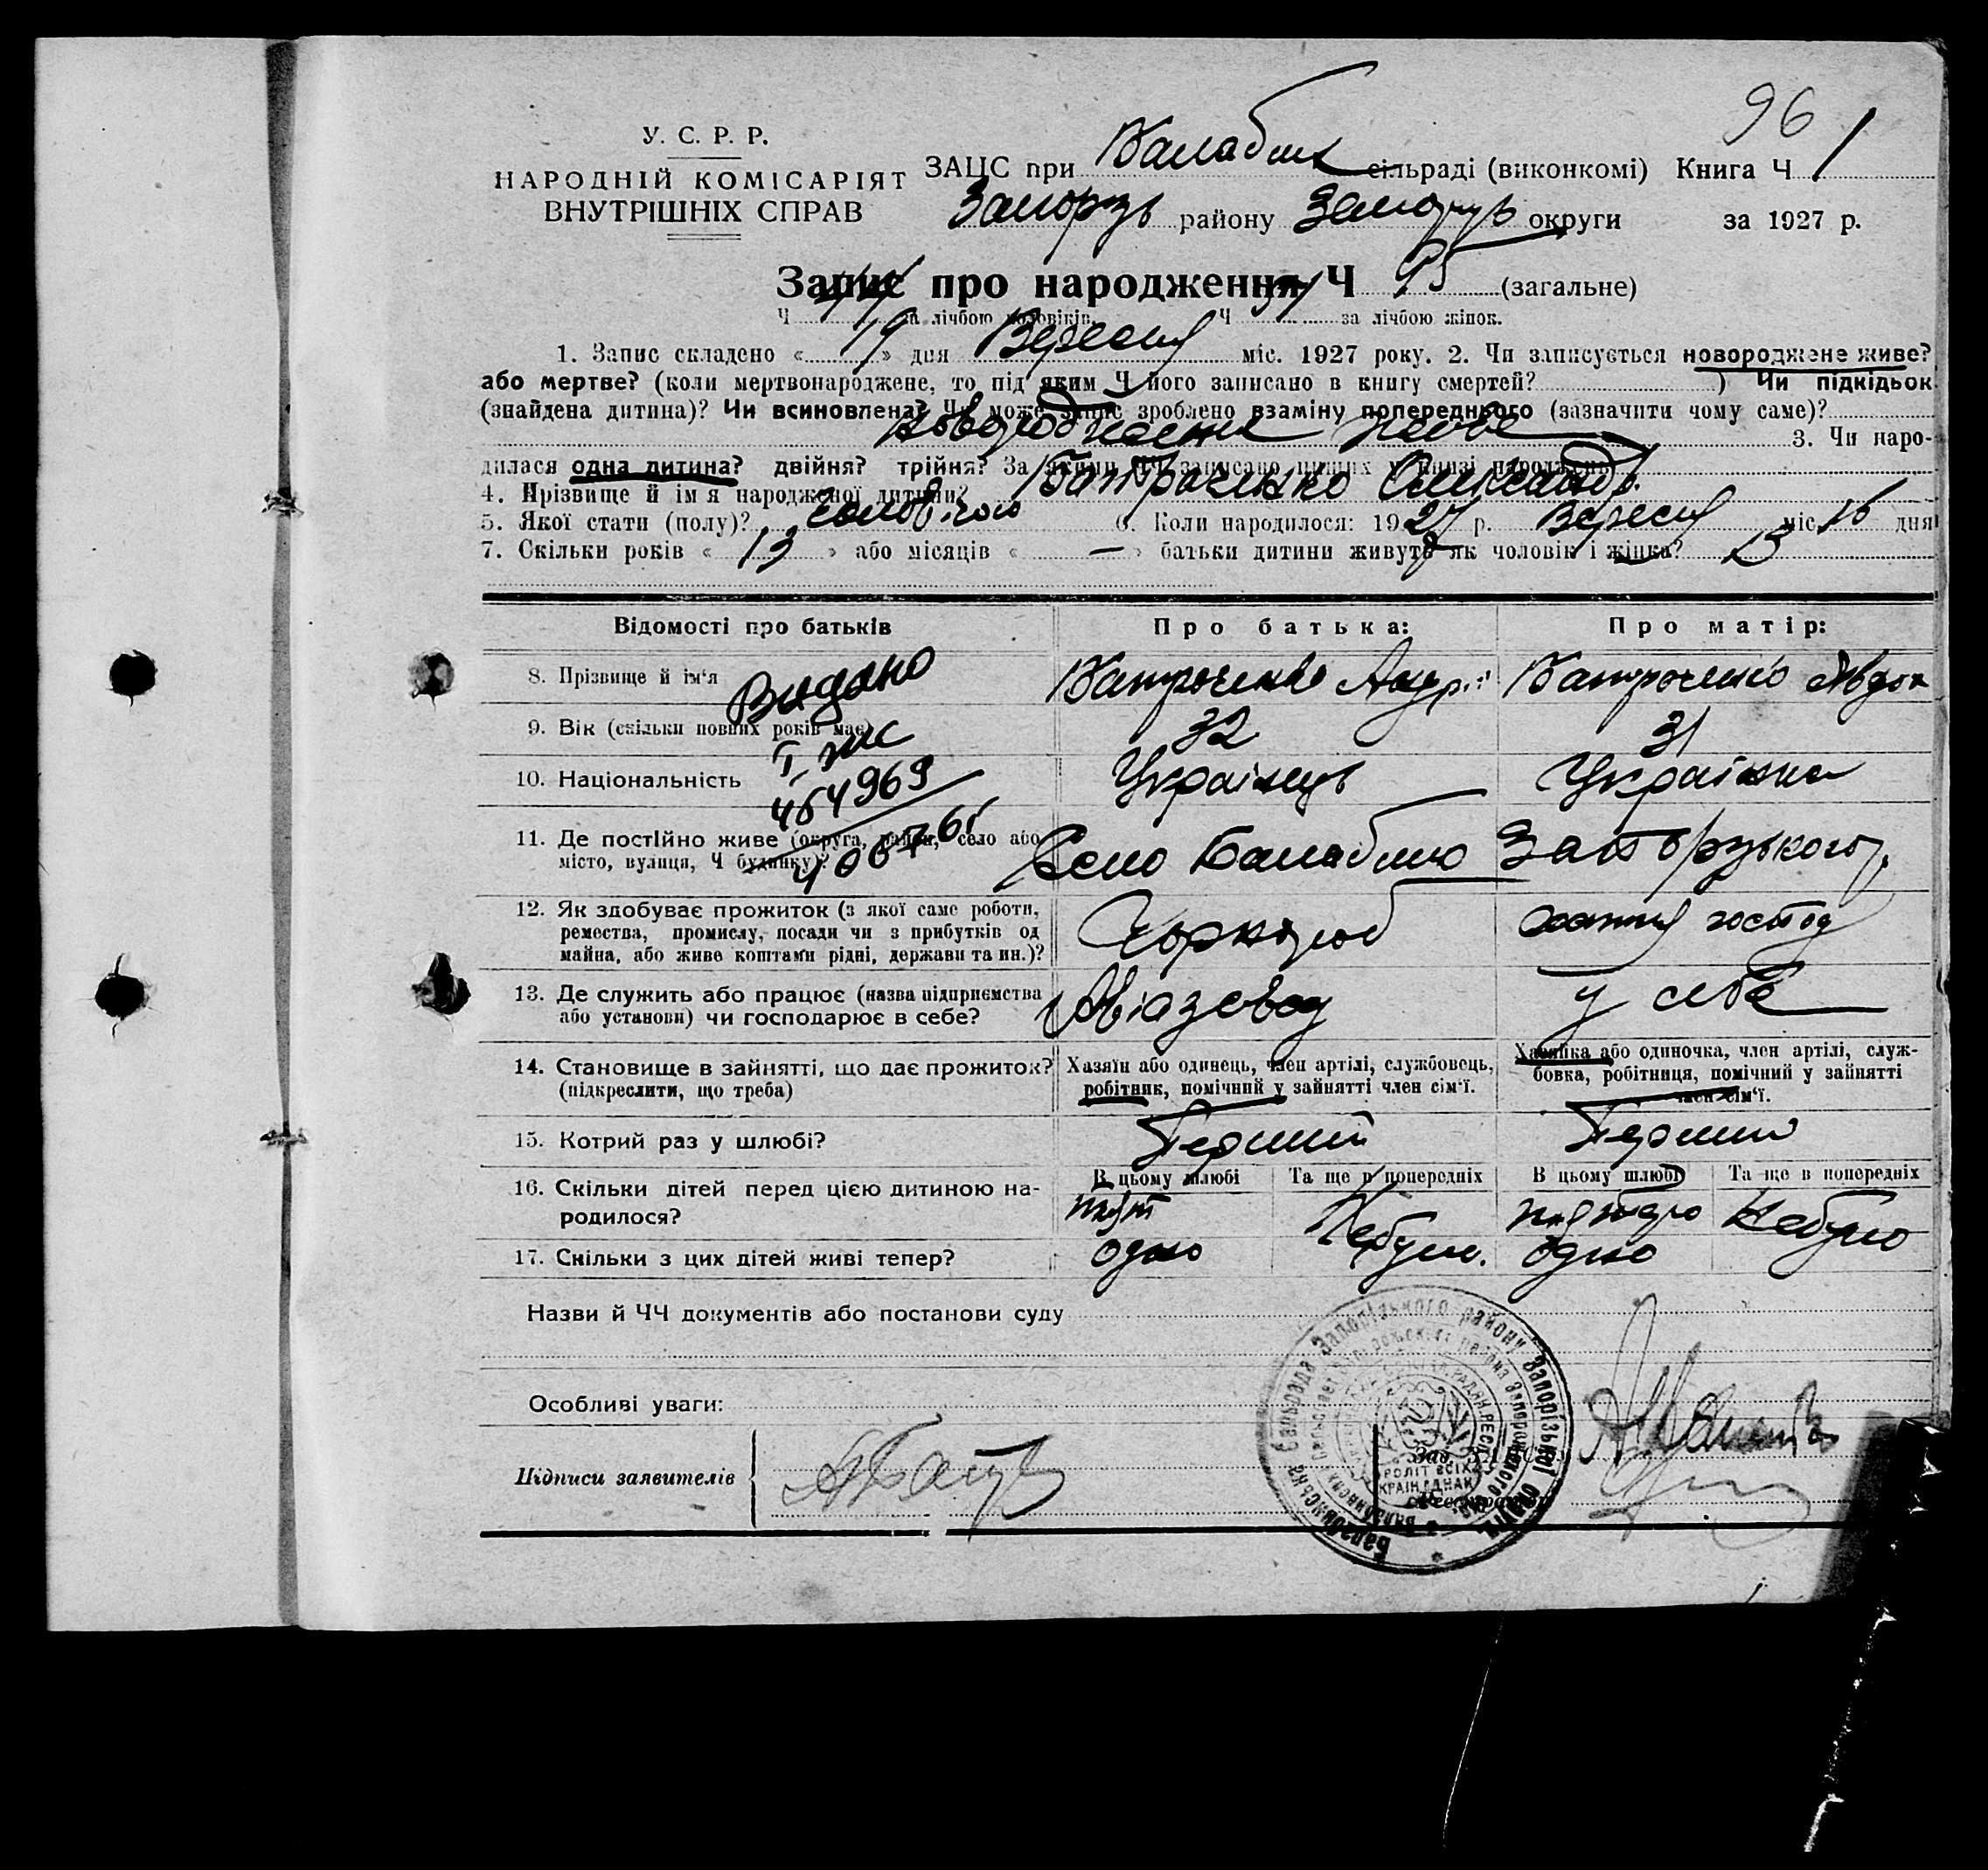 96
У. С. Р. Р.
НАРОДНІЙ КОМІСАРІЯТ
ВНУТРІШНІХ СПРАВ
ЗАЦС при Балабин сільраді (виконкомі) Книга Ч 1
Запорзь району Запорузь округи за 1927 р.
Запис про народження Ч 95 (загальне)
Ч 44 за лічбою чоловіків. Ч 51 за лічбою жінок.
1. Запис складено « 19 » дня Вересня міс. 1927 року. 2. Чи записується новороджене живе?
або мертве? (коли мертвонароджене, то під яким Ч його записано в книгу смертей? ) Чи підкідьок
(знайдена дитина)? Чи всиновлена? Чи може запис зроблено взаміну попереднього (зазначити чому саме)?
Новородженне живе 3. Чи наро-
дилася одна дитина? двійня? трійня? За якими ЧЧ записано инших у книзі народжень
4. Прізвище й ім'я народженої дитини? Батраченко Олександр
5. Якої стати (полу)? Чоловічою 6. Коли народилося: 1927 р. Вересня міс. 16 дня
7. Скільки років « 13 » або місяців « — » батьки дитини живуть як чоловік і жінка? 13
Відомості про батьків Про батька: Про матір:
8. Прізвище й ім'я Батраченко Андрій Батраченко Явдок
Видано
9. Вік (скільки повних років має) 32 31
10. Національність Українець Українка
454969
11. Де постійно живе (округа, район, село або
місто, вулиця, Ч будинку)? Село Балабино Запорузького р.
12. Як здобуває прожиток (з якої саме роботи,
ремества, промислу, посади чи з прибутків од
майна, або живе коштами рідні, держави та ин.)? Чорнороб хатня господ
13. Де служить або працює (назва підприємства
або установи) чи господарює в себе? Авіазавод у себе
14. Становище в зайнятті, що дає прожиток?
(підкреслити, що треба)
Хазяїн або одинець, член артілі, службовець,
робітник, помічний у зайнятті член сім'ї.
Хазяйка або одиночка, член артілі, служ-
бовка, робітниця, помічний у зайнятті
член сім'ї.
15. Котрий раз у шлюбі? Перший Перший
В цьому шлюбі Та ще в попередніх В цьому шлюбі Та ще в попередніх
16. Скільки дітей перед цією дитиною на-
родилося? Небуло
17. Скільки з цих дітей живі тепер? одно одно
Назви й ЧЧ документів або постанови суду
Особливі уваги:
Підписи заявителів
Балабинська Сільрада Запорізького району Запорізької округи
ПРОЛІТ ВСІХ
КРАЇН ЄДНАЙ